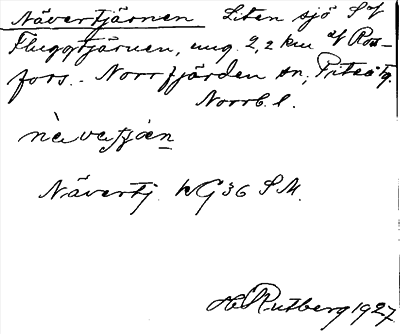 Nävertjärnen Liten sjö S of
Fluggtjärnen, ung. 2,2 km of Ros-
fors. - Norrfjärden sn, Piteå tg.
Norrb. l.
Nävertj. KG36 S.M.
H Rutberg 1927